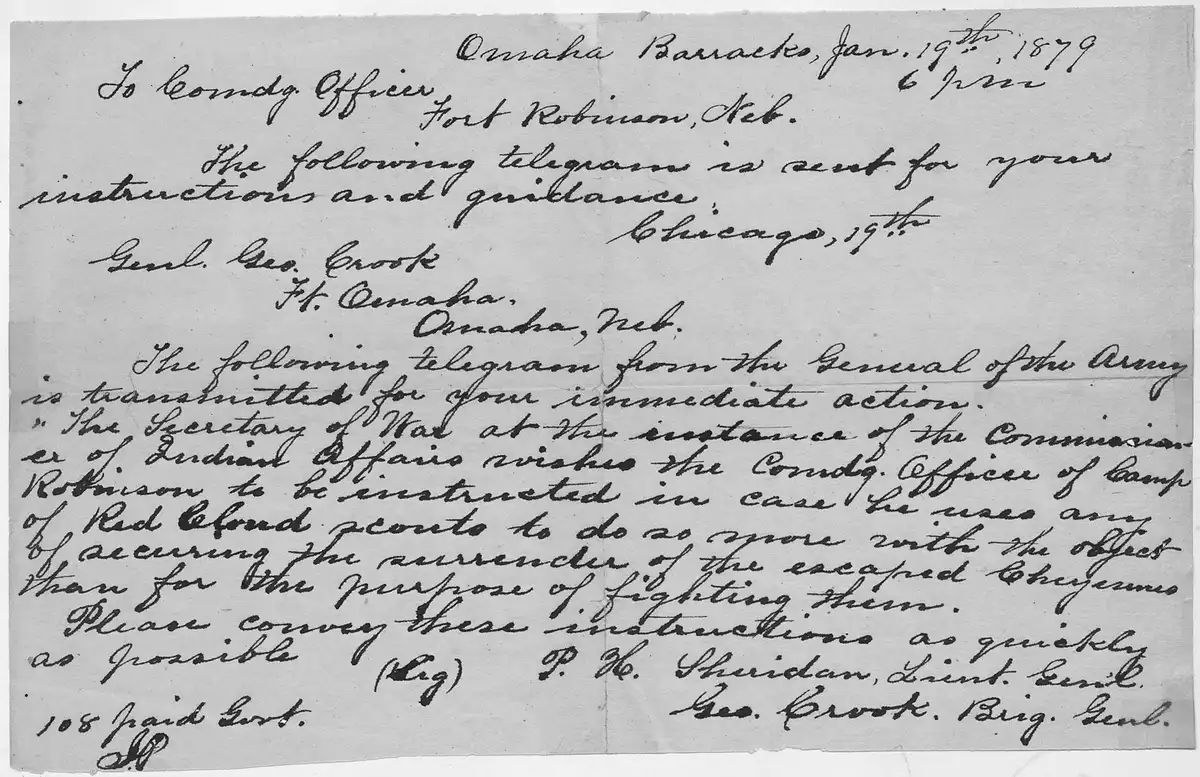 Omaha Barracks, Jan. 19th, 1879
6 pm
To Comdg. Officer
Fort Robinson, Neb.
The following telegram is sent for your
instructions and guidance.
Chicago, 19th
Genl. Geo. Crook
Ft. Omaha.
Omaha, Neb.
The following telegram from the General of the Army
is transmitted for your immediate action.
"The Secretary of War at the instance of the Commission-
er of Indian Affairs wishes the Comdg. Officer of Camp
Robinson to be instructed in case he uses any
of Red Cloud scouts to do so more with the object
of securing the surrender of the escaped Cheyennes
than for the purpose of fighting them.
Please convey these instructions as quickly
as possible
(Sig) P. H. Sheridan, Lieut. Genl.
Geo. Crook. Brig. Genl.
108 paid Govt.